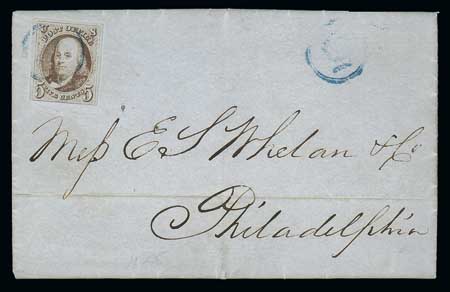 POST OFFICE
5 FIVE CENTS 5
Mess E S Whelan & Co
Philadelphia